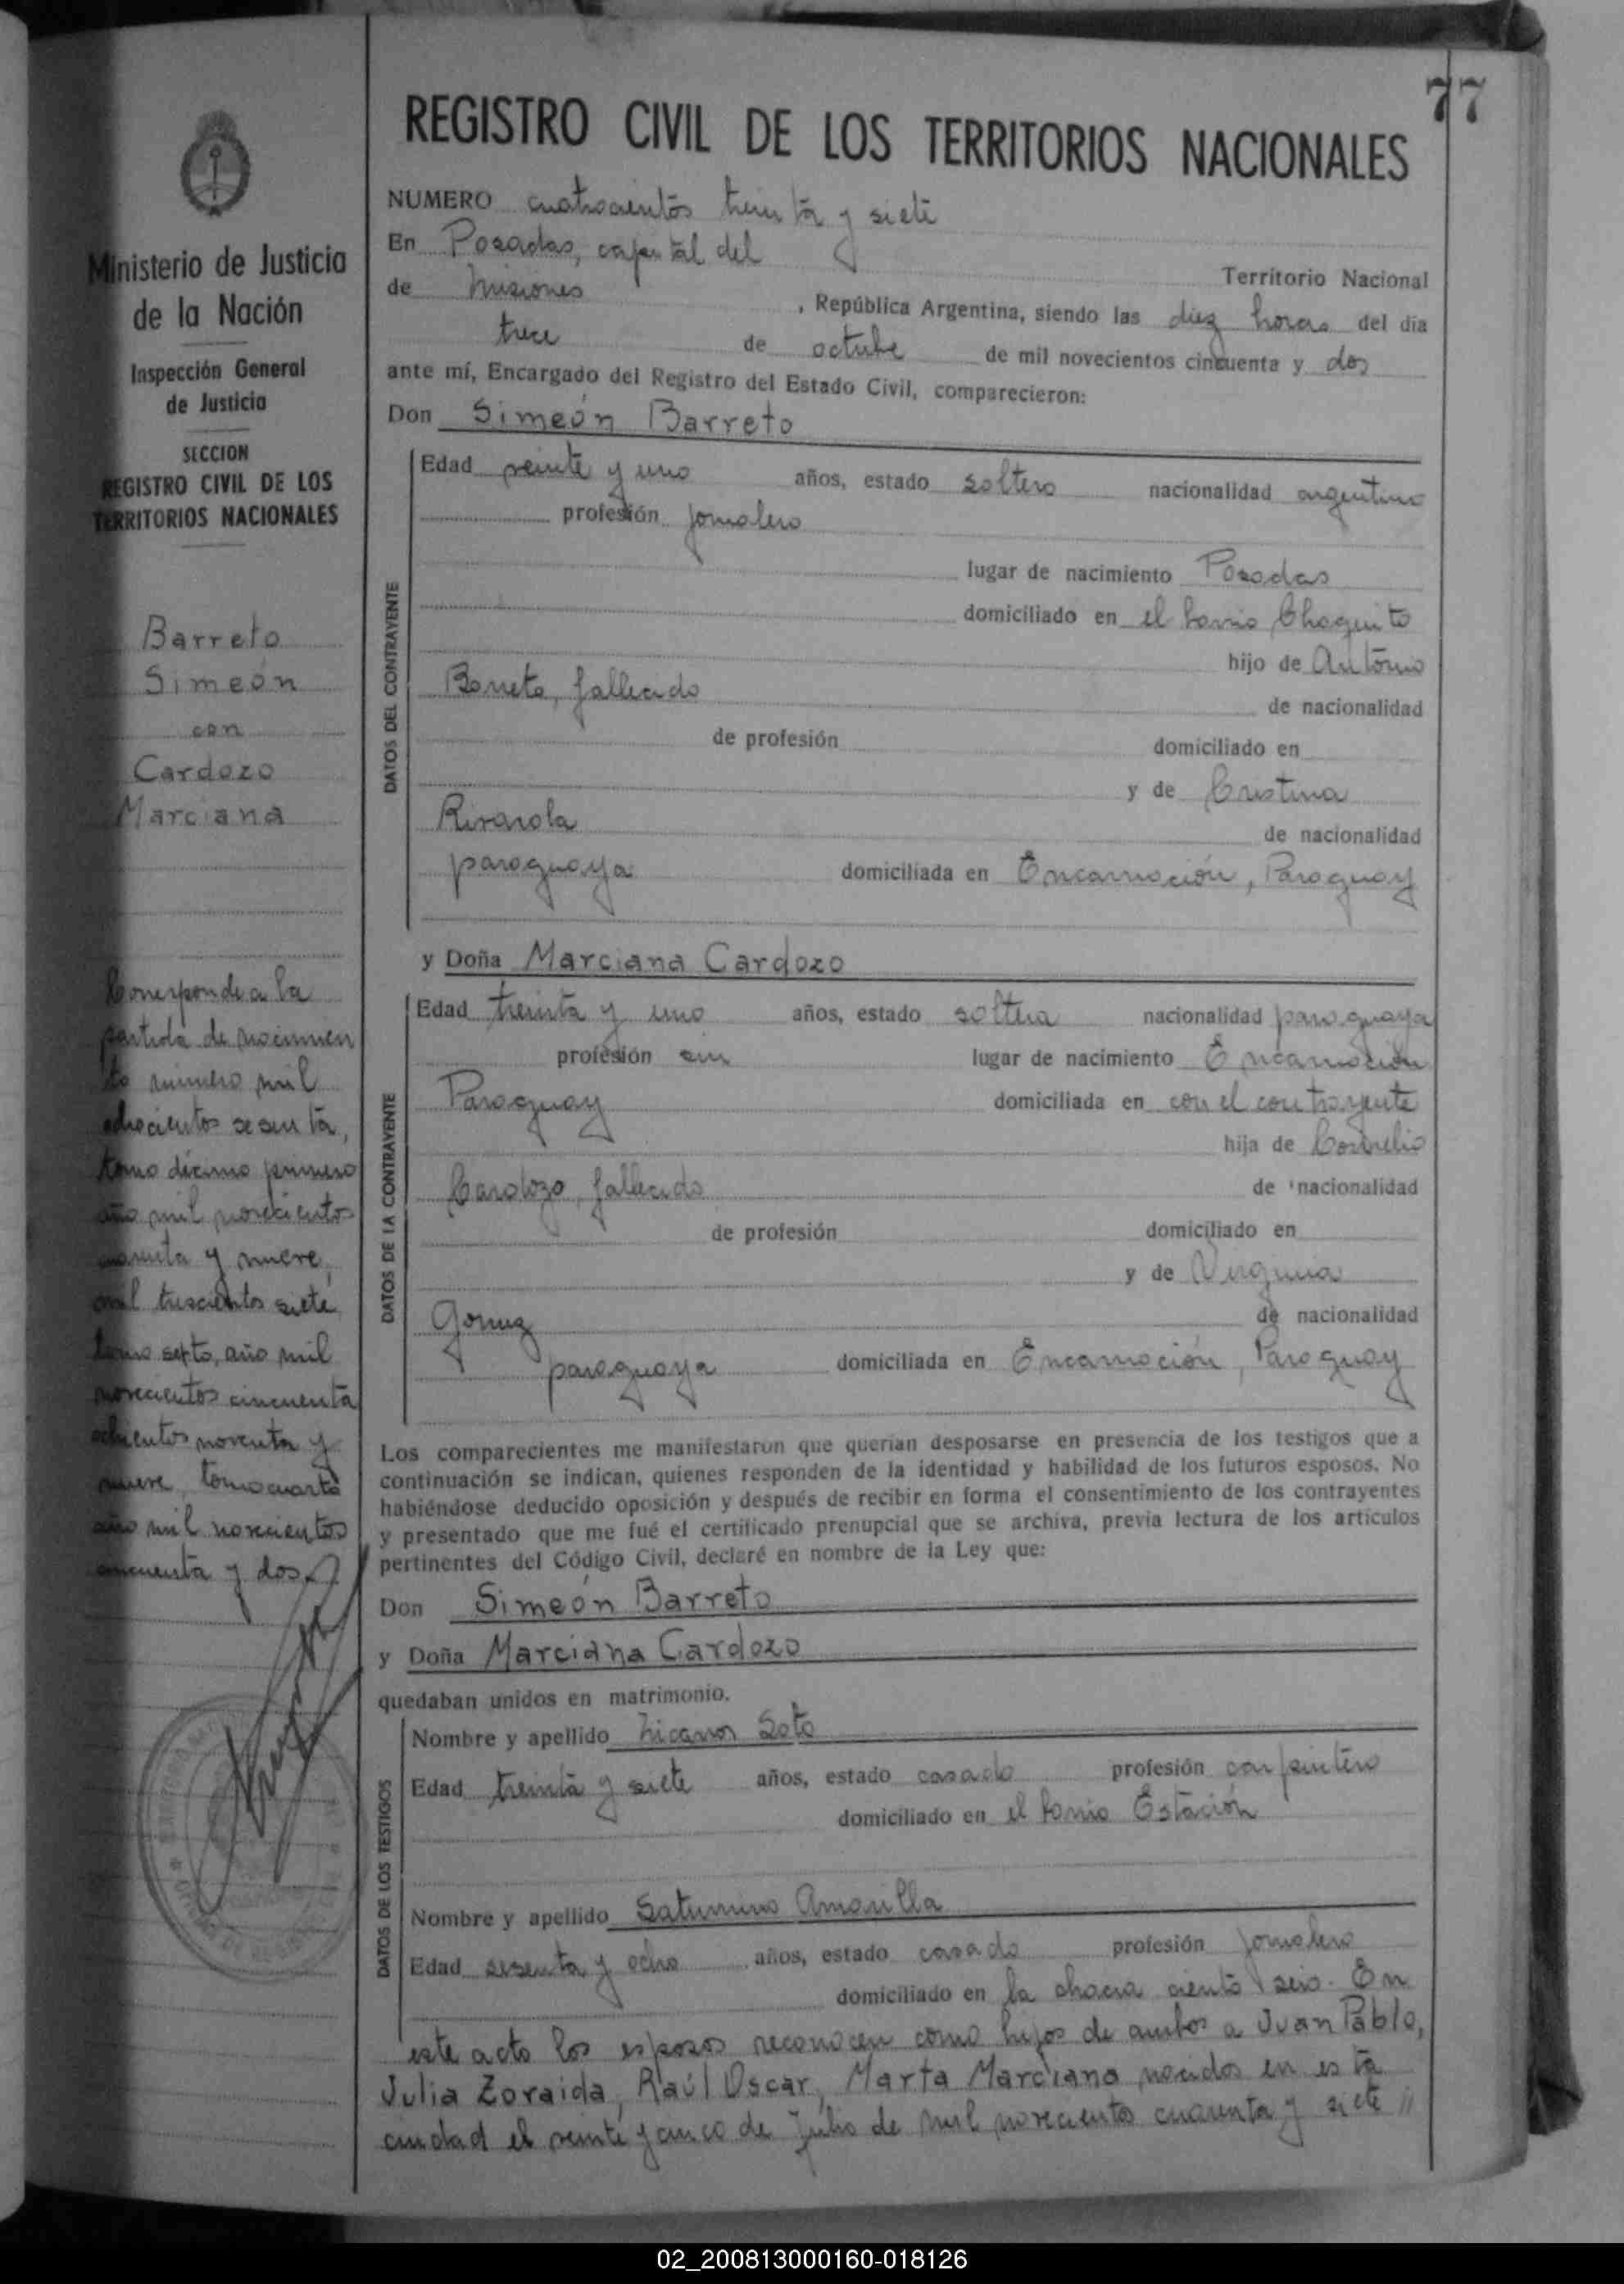 77
REGISTRO CIVIL DE LOS TERRITORIOS NACIONALES
Ministerio de Justicia
de la Nación
Inspección General
de Justicia
SECCION
REGISTRO CIVIL DE LOS
TERRITORIOS NACIONALES
Barreto
Simeón
con
Cardozo
Marciana
Corresponde a la
partida de nacimien
to número mil
ochocientos sesenta,
tomo décimo primero
año mil novecientos
cuarenta y nueve,
mil trescientos siete,
tomo septo, año mil
novecientos cincuenta
ochicientos noventa y
nueve, tomo cuarto
año mil novecientos
cincuenta y dos
NUMERO cuatrocientos treinta y siete
En Posadas, capital del
Territorio Nacional
de Misiones, República Argentina, siendo las diez horas del día
trece de octubre de mil novecientos cincuenta y dos
ante mí, Encargado del Registro del Estado Civil, comparecieron:
Don Simeón Barreto
DATOS DEL CONTRAYENTE
Edad veinte y uno años, estado soltero nacionalidad argentino
profesión jornalero
lugar de nacimiento Posadas
domiciliado en el barrio Chaquito
hijo de Antonio
Barreto, fallecido
de nacionalidad
de profesión domiciliado en
y de Cristina
Rivarola
de nacionalidad
paraguaya domiciliada en Encarnación, Paraguay
y Doña Marciana Cardozo
DATOS DE LA CONTRAYENTE
Edad treinta y uno años, estado soltera nacionalidad paraguaya
profesión sin lugar de nacimiento Encarnación
Paraguay domiciliada en con el contrayente
hija de Cornelio
Cardozo, fallecido
de nacionalidad
de profesión domiciliado en
y de Virginia
Gomez
de nacionalidad
paraguaya domiciliada en Encarnación, Paraguay
Los comparecientes me manifestaron que querían desposarse en presencia de los testigos que a
continuación se indican, quienes responden de la identidad y habilidad de los futuros esposos. No
habiéndose deducido oposición y después de recibir en forma el consentimiento de los contrayentes
y presentado que me fué el certificado prenupcial que se archiva, previa lectura de los artículos
pertinentes del Código Civil, declaré en nombre de la Ley que:
Don Simeón Barreto
y Doña Marciana Cardozo
quedaban unidos en matrimonio.
DATOS DE LOS TESTIGOS
Nombre y apellido Nicanor Soto
Edad treinta y siete años, estado casado profesión carpintero
domiciliado en el barrio Estación
Nombre y apellido Saturnino Amarilla
Edad sesenta y ocho años, estado casado profesión jornalero
domiciliado en la chacra ciento seis. En
este acto los esposos reconocen como hijos de ambos a Juan Pablo,
Julia Zoraida, Raúl Oscar, Marta Marciana nacidos en esta
ciudad el veinte y cinco de Julio de mil novecientos cuarenta y siete //
02_200813000160-018126